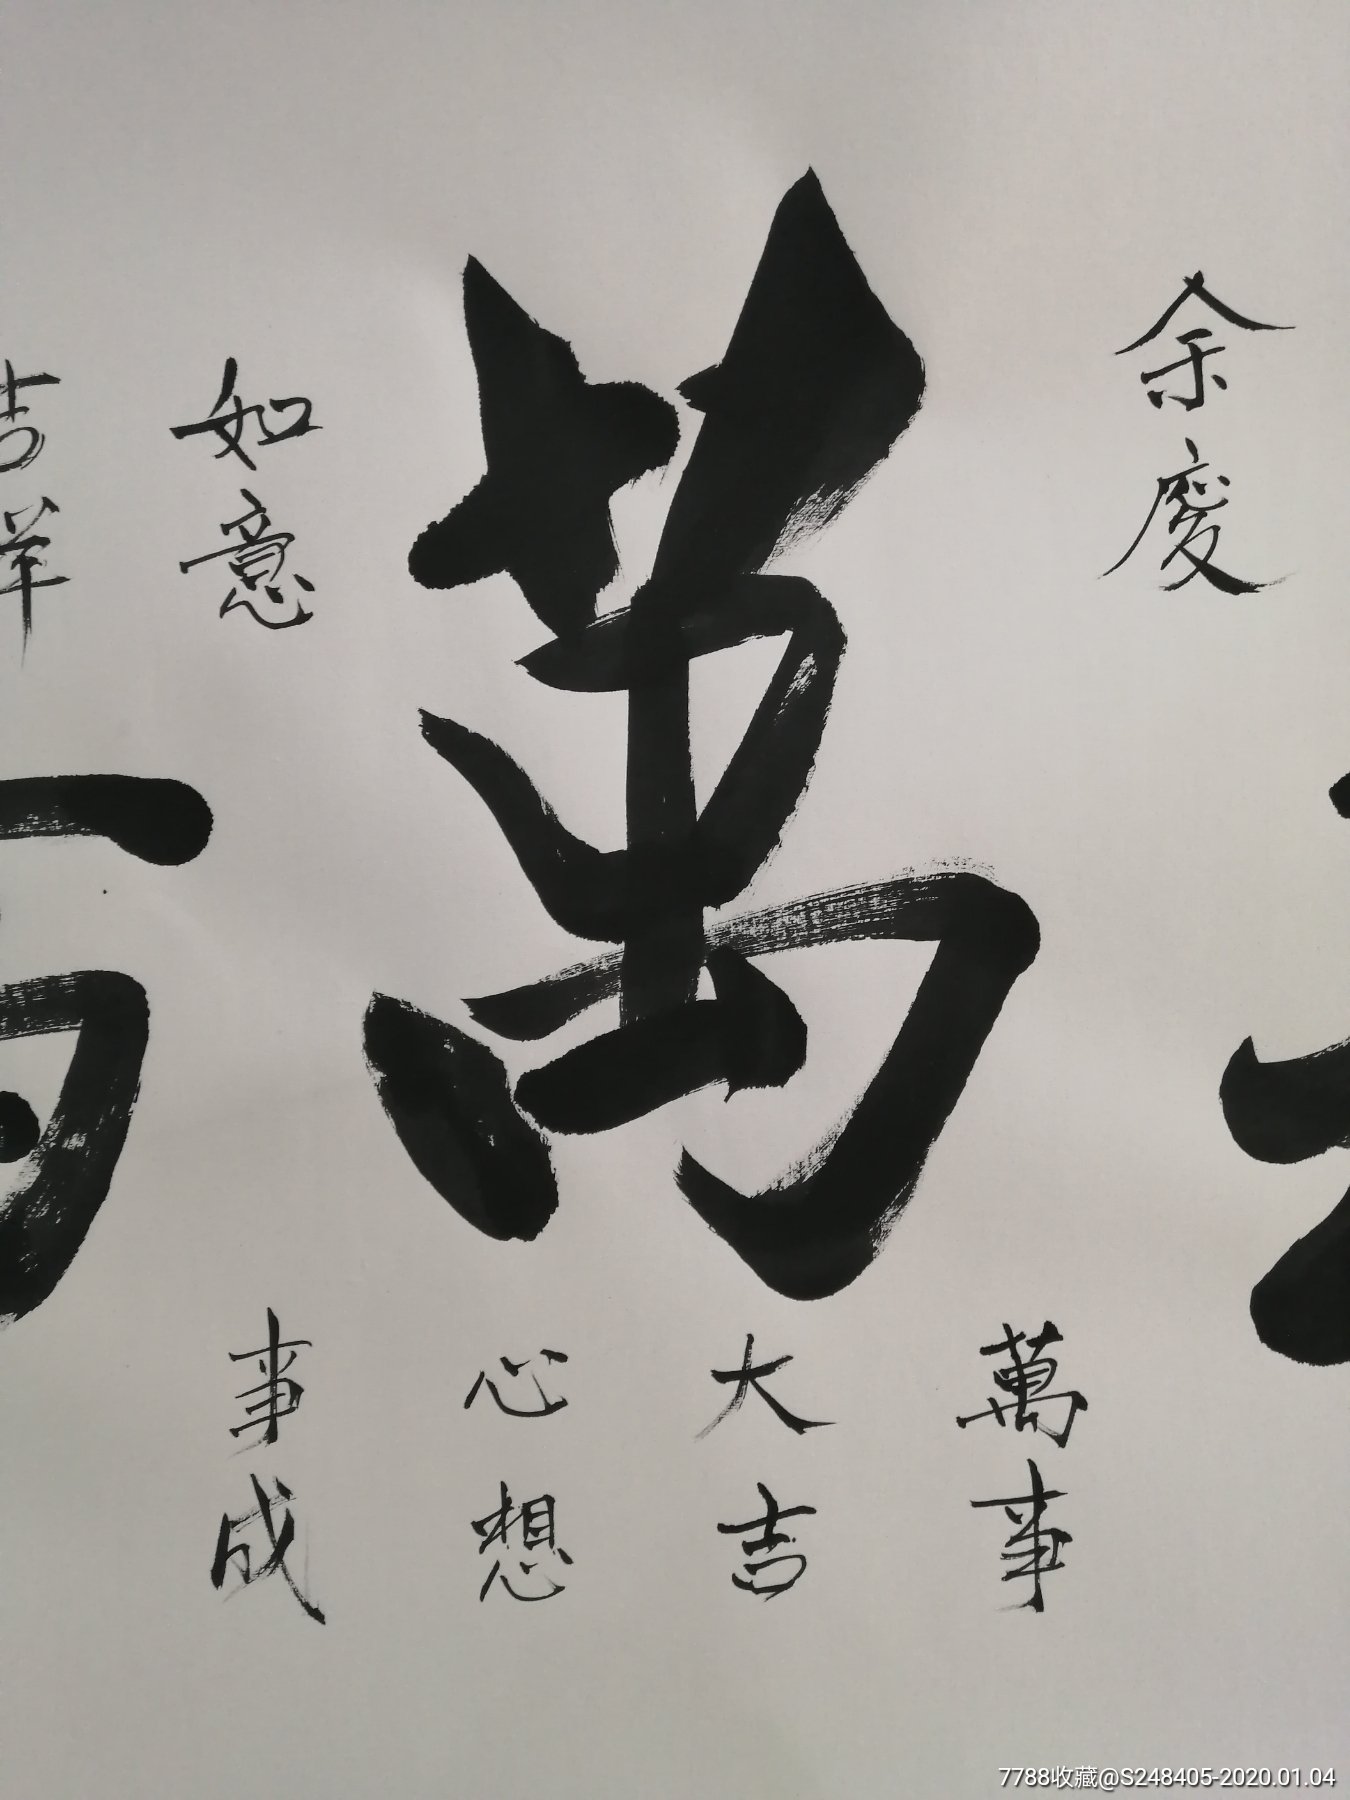 余慶
萬
萬事
大吉
心想
事成
如意
吉羊
7788收藏@S248405-2020.01.04